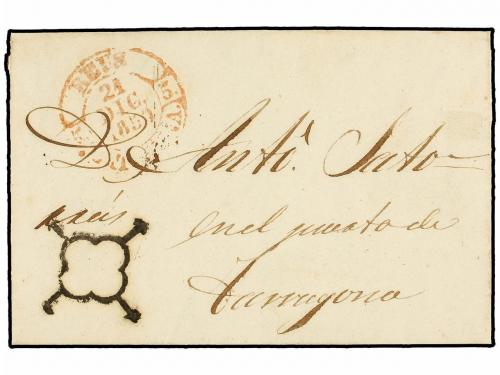 REUS
21
DIC.
185
D. Antº. Sato-
rrás
en el puerto de
Tarragona